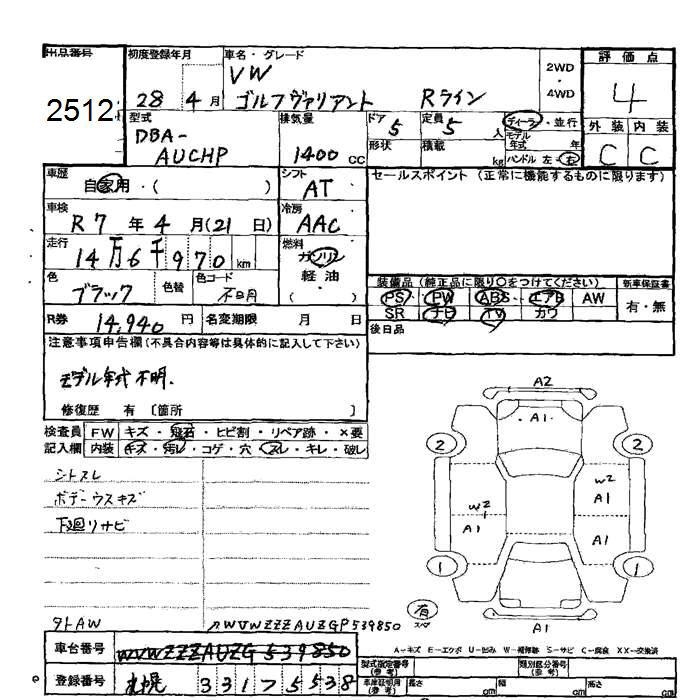 出品番号
2512
初度登録年月
28 4月
車名・グレード
VW
ゴルフヴァリアント Rライン
2WD・4WD
評価点
4
外装 内装
C C
型式
DBA-
AUCHP
排気量
1400 CC
ドア 5
定員 5 人
形状
積載 kg
ディーラ・並行
モデル年式 年
ハンドル 左・右
車歴
自家用・( )
シフト
AT
セールスポイント (正常に機能するものに限ります)
車検
R7年4月(21日)
冷房
AAC
走行
14万6千970km
燃料
ガソリン
軽油
( )
色
ブラック
色替
色コード
不明
装備品(純正品に限り○をつけてください)
PS PW ABS エアB AW
SR ナビ TV カワ
新車保証書
有・無
後日品
R券 14,940円
名変期限 月 日
注意事項申告欄(不具合内容等は具体的に記入して下さい)
モデル年式不明.
修復歴 有 〔箇所 〕
検査員記入欄
FW キズ・飛石・ヒビ割・リペア跡・×要
内装 キズ・汚レ・コゲ・穴・スレ・キレ・破レ
シトスレ
ボデーウスキズ
下廻リサビ
A2
A1
2 2
W2
A1
W2
A1 A1
1 1
A1
有
スペア
外AW
WVWZZZAUZGP539850
車台番号
WVWZZZAUZG 539850
登録番号
札幌 331 75538
A－キズ E－エクボ U－凹み W－補修跡 S－サビ C－腐食 XX－交換済
型式指定番号(参考)
類別区分番号(参考)
車庫証明用(参考)
長さ cm
幅 cm
高さ cm